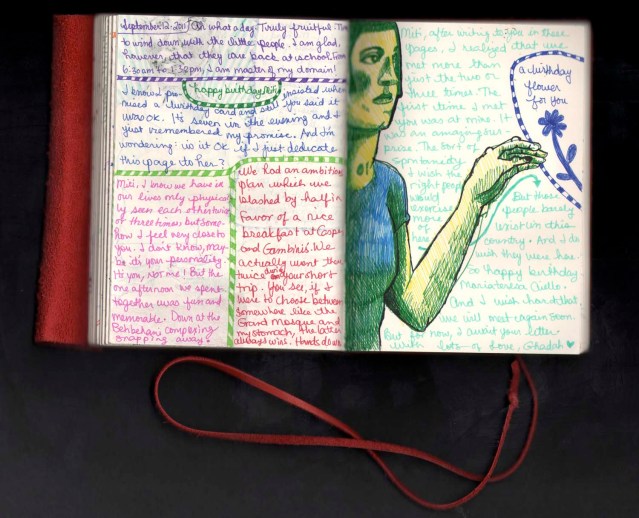 September 12, 2011, Oh what a day. Truly fruitful. Time
to wind down with the little people. I am glad,
however, that they are back at school. From
6:30am to 1:30pm, I am master of my domain!
happy birthday, Miti
I know I insisted when
missed a birthday card and still you said it
was OK. It's seven in the evening and I
just remembered my promise. And I'm
wondering: is it OK if I just dedicate
this page to her?
Miti, I know we have in
our lives only physical-
ly seen each other twice
or three times but some-
how I feel very close to
you. I don't know, may
be it's your personality.
Hi you, not me! But the
one afternoon we spent
together was fun and
memorable. Down at the
Behbehani compound
snapping away.
We had an ambitious
plan which we
slashed by half in
favor of a nice
breakfast at Cospe
and Gambini's. We
actually went there
twice during your short
trip. You see, if I
were to choose between
somewhere like the
Grand Mosque and
my stomach, the later
always wins. Hands down
Miti, after writing to you in these
pages, I realized that we
met more than
just the two or
three times. The
first time I met
you was at mine. It
was an amazing sur-
prise. The sort of
spontaneity
I wish the
right people
would
exercise
more of
here.
But those
people barely
exist in this
country. And I do
wish they were here
so happy birthday
Mariateresa Ciello.
And I wish hard that
we will meet again soon.
But for now, I await your letter
with lots of love, Ghadah ♥
a birthday
flower
for you